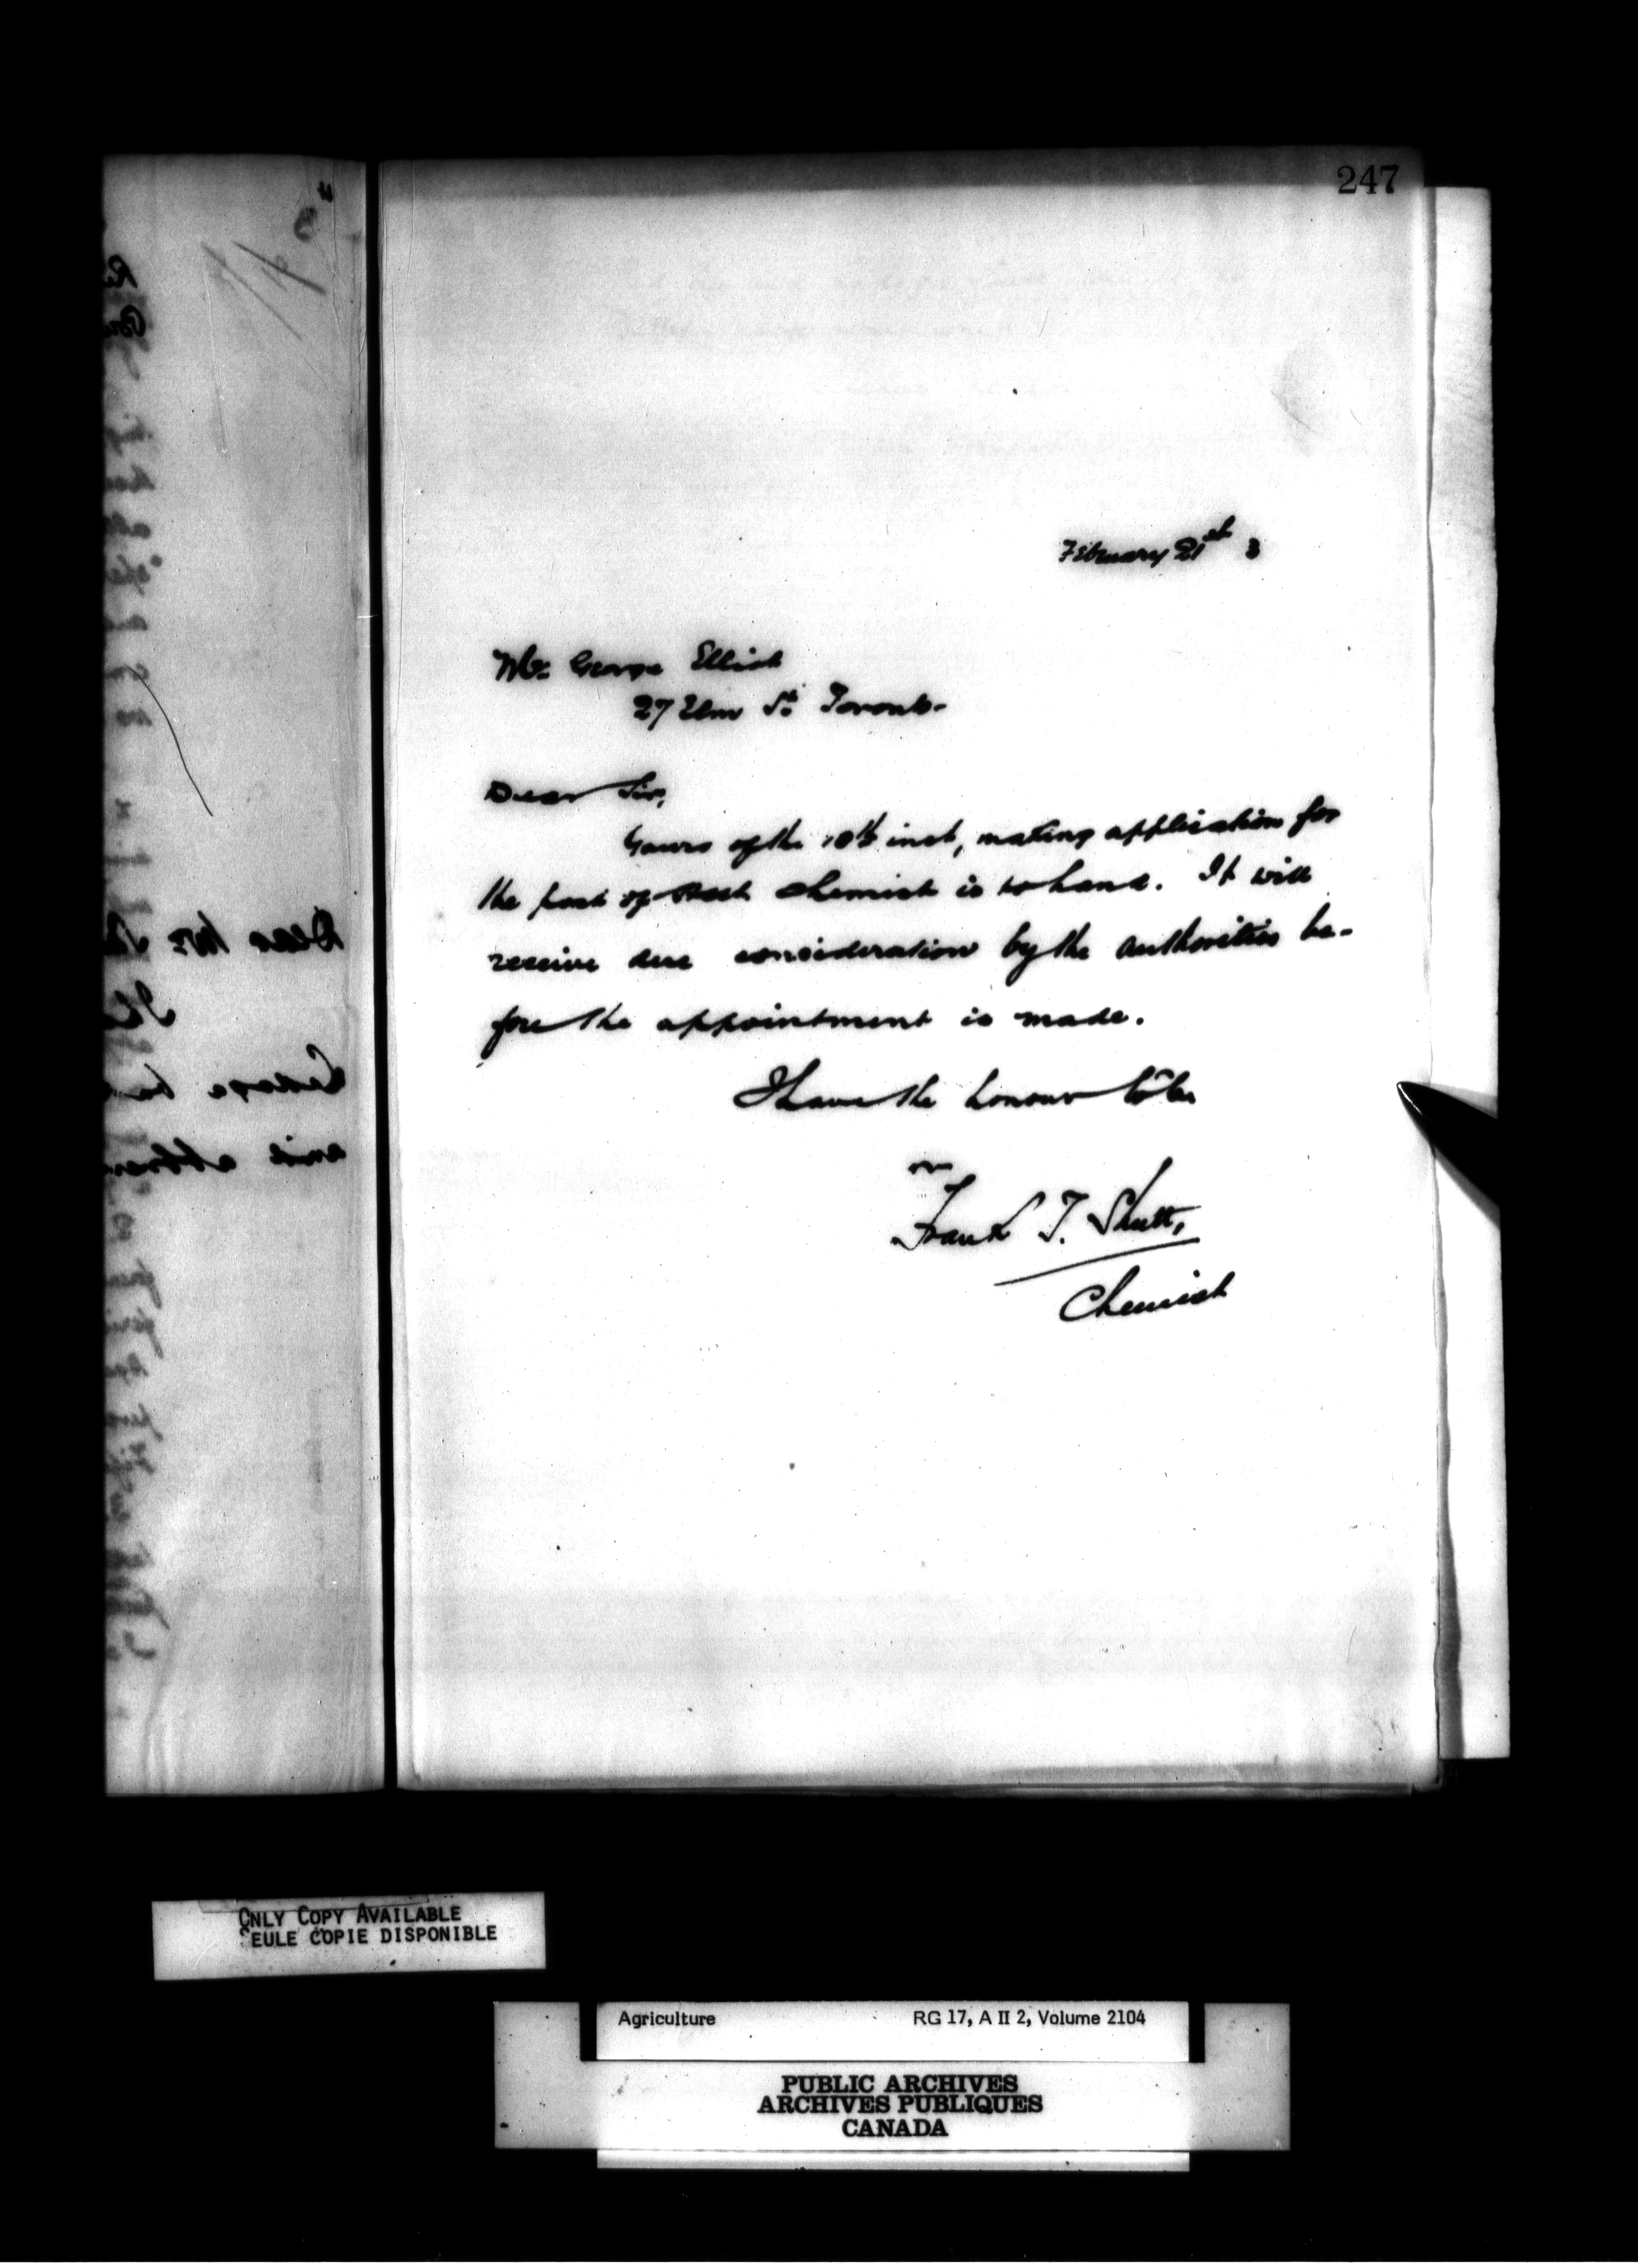 247
February 21st 3
Mr. George Elliot
27 Elm St. Toronto-
Dear Sir,
Yours of the 10th inst, making application for
the post of Asst Chemist is to hand. It will
receive due consideration by the authorities be-
fore the appointment is made.
I have the honour to be
Frank T. Shutt,
Chemist
Dear Mr.
ONLY COPY AVAILABLE
SEULE COPIE DISPONIBLE
Agriculture RG 17, A II 2, Volume 2104
PUBLIC ARCHIVES
ARCHIVES PUBLIQUES
CANADA